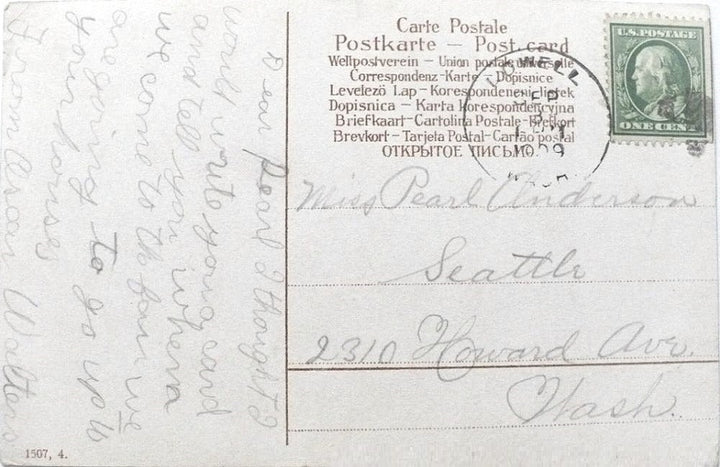 Carte Postale
Postkarte – Post card
Weltpostverein – Union postale universelle
Correspondenz-Karte – Dopisnice
Levelező Lap – Korespondenční lístek
Dopisnica – Karta korespondencyjna
Briefkaart – Cartolina Postale – Bretkort
Brevkort – Tarjeta Postal – Cartão postal
ОТКРЫТОЕ ПИСЬМО.
U.S. POSTAGE
ONE CENT
WELL
SEP
1909
WASH.
Miss Pearl Anderson
Seattle
2310 Howard Ave.
Wash.
Dear Pearl I thought I
would write you a card
and tell you when
we come to the fair we
are going to go up to
your houses
From Oscar Walters
1507, 4.